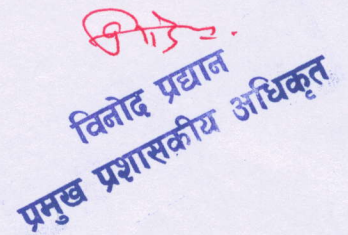 विनोद प्रद्यान
प्रमुख प्रशासकीय अधिकृत